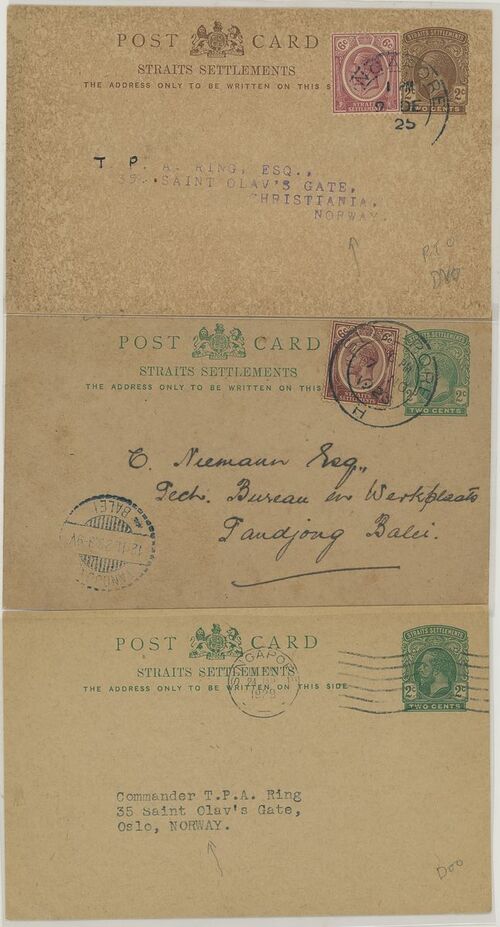 POST CARD
STRAITS SETTLEMENTS
THE ADDRESS ONLY TO BE WRITTEN ON THIS S
6c 6c
STRAITS
SETTLEMENTS
STRAITS SETTLEMENTS
2c 2c
TWO CENTS
ORE
PM
DE
25
T. P. A. RING, ESQ.,
35, SAINT OLAV'S GATE,
CHRISTIANIA,
NORWAY.
P.T.O
POST CARD
STRAITS SETTLEMENTS
THE ADDRESS ONLY TO BE WRITTEN ON THIS
6c 6c
STRAITS
SETTLEMENTS
STRAITS SETTLEMENTS
2c 2c
TWO CENTS
ORE
C. Niemann Esq.,
Tech. Bureau en Werkplaats
Tandjong Balei.
BALEI
POST CARD
STRAITS SETTLEMENTS
THE ADDRESS ONLY TO BE WRITTEN ON THIS SIDE
STRAITS SETTLEMENTS
2c 2c
TWO CENTS
SINGAPORE
1929
Commander T.P.A. Ring
35 Saint Olav's Gate,
Oslo, NORWAY.